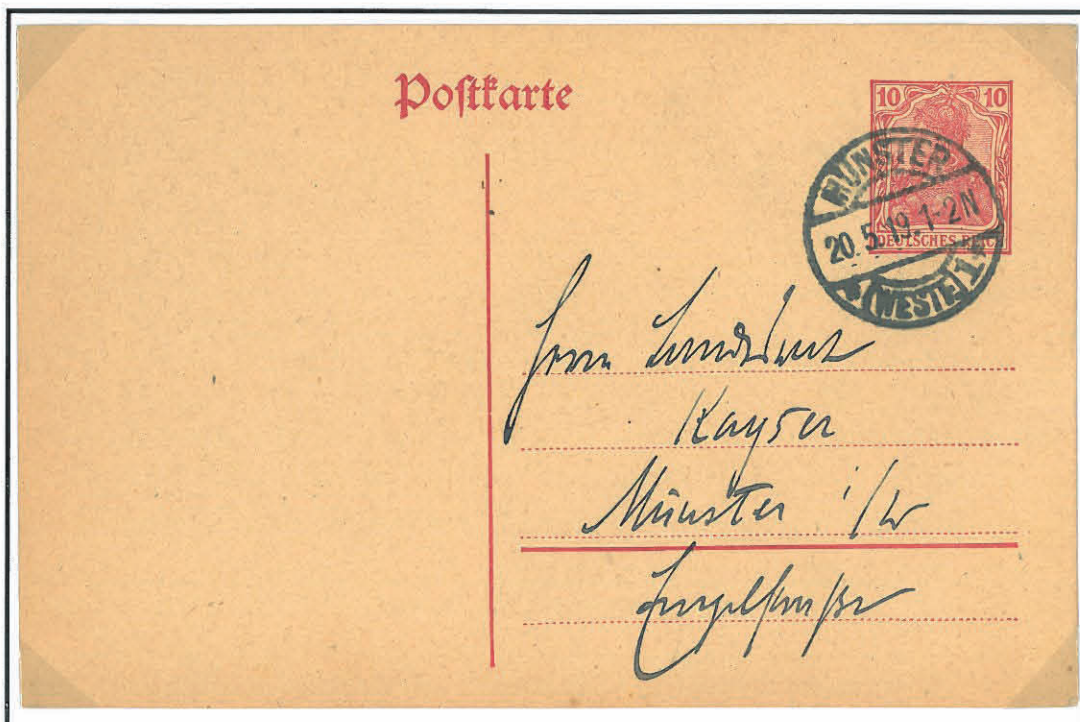 Postkarte
10 10
DEUTSCHES REICH
MÜNSTER
20.5.19.1-2N
* (WESTF.) 1 *
Herrn Landesrat
Kayser
Münster i/W
Engelstraße